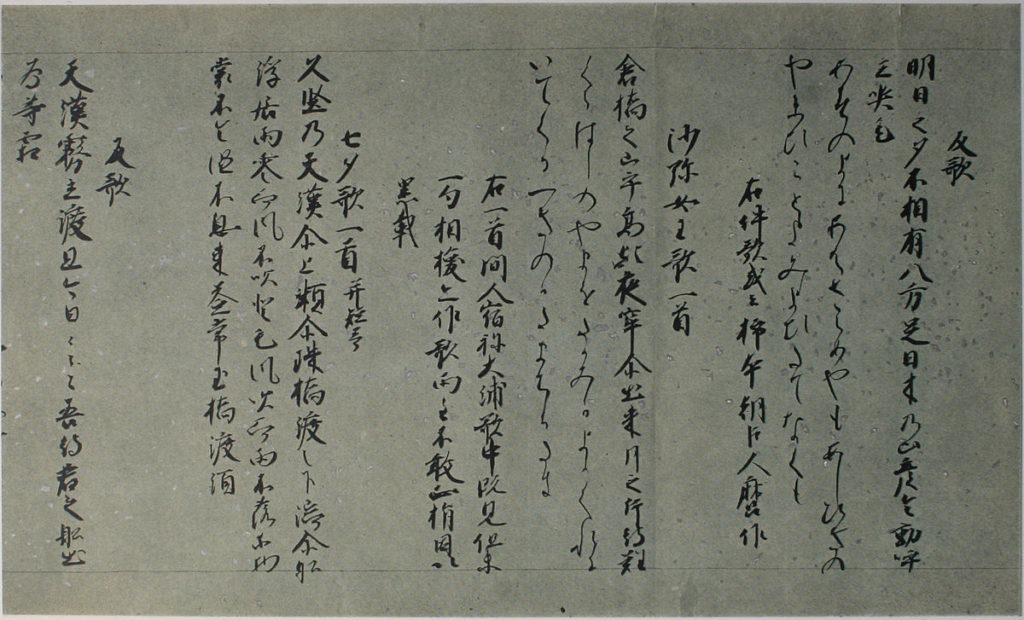 反歌
明日之夕不相有八方足日木乃山彦令動呼
立哭毛
あすのよひあはさらめやもあしひきの
やまひことよみよひたてなくも
右件歌或云柿本朝臣人麿作
沙弥女王歌一首
倉橋之山乎高歟夜窂尓出来月之片待難
くらはしのやまをたかみかよこもりに
いてくる つきの かたまちかたき
右一首間人宿祢大浦歌中既見但末
一句相換亦作歌両主不敢正指因以
累載
七夕歌一首 并短哥
久堅乃天漢尓上瀬尓珠橋渡之下湍尓船
浮居雨零而風不吹登毛風吹而雨不落等物
裳不令湿不息来益常玉橋渡須
反歌
天漢霧立渡且今日〻〻〻吾待君之船出
為等霜